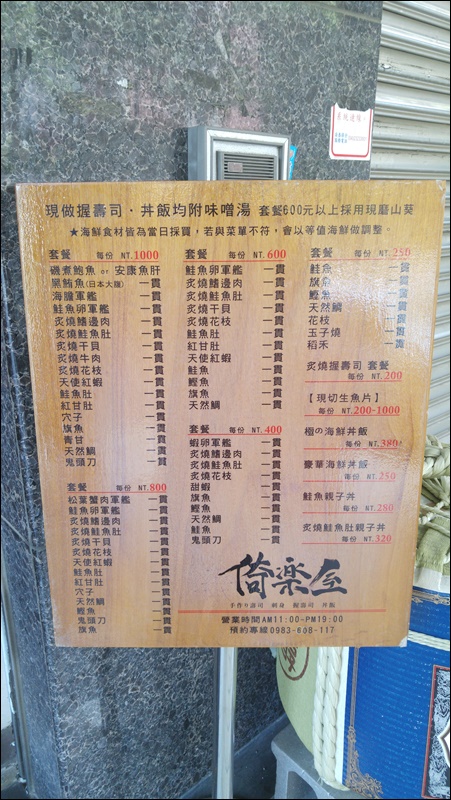 現做握壽司‧丼飯均附味噌湯 套餐600元以上採用現磨山葵
★海鮮食材皆為當日採買，若與菜單不符，會以等值海鮮做調整。
套餐 每份 NT.1000
磯煮鮑魚 or 安康魚肝
黑鮪魚(日本大腹) 一貫
海膽軍艦 一貫
鮭魚卵軍艦 一貫
炙燒鰭邊肉 一貫
炙燒鮭魚肚 一貫
炙燒干貝 一貫
炙燒牛肉 一貫
炙燒花枝 一貫
天使紅蝦 一貫
鮭魚肚 一貫
紅甘肚 一貫
穴子 一貫
旗魚 一貫
青甘 一貫
天然鯛 一貫
鬼頭刀 一貫
套餐 每份 NT.800
松葉蟹肉軍艦 一貫
鮭魚卵軍艦 一貫
炙燒鰭邊肉 一貫
炙燒鮭魚肚 一貫
炙燒干貝 一貫
炙燒花枝 一貫
天使紅蝦 一貫
鮭魚肚 一貫
紅甘肚 一貫
穴子 一貫
天然鯛 一貫
鰹魚 一貫
鬼頭刀 一貫
旗魚 一貫
套餐 每份 NT.600
鮭魚卵軍艦 一貫
炙燒鰭邊肉 一貫
炙燒鮭魚肚 一貫
炙燒干貝 一貫
炙燒花枝 一貫
鮭魚肚 一貫
紅甘肚 一貫
天使紅蝦 一貫
鮭魚 一貫
鰹魚 一貫
旗魚 一貫
天然鯛 一貫
套餐 每份 NT.400
蝦卵軍艦 一貫
炙燒鰭邊肉 一貫
炙燒鮭魚肚 一貫
炙燒花枝 一貫
甜蝦 一貫
旗魚 一貫
鰹魚 一貫
天然鯛 一貫
鮭魚 一貫
鬼頭刀 一貫
套餐 每份 NT.250
鮭魚 一貫
旗魚 一貫
鰹魚 一貫
天然鯛 一貫
花枝 一貫
玉子燒 一貫
稻禾 一貫
炙燒握壽司 套餐
每份 NT.200
【現切生魚片】
每份 NT.200-1000
極の海鮮丼飯
每份 NT.380
豪華海鮮丼飯
每份 NT.250
鮭魚親子丼
每份 NT.280
炙燒鮭魚肚親子丼
每份 NT.320
偆楽屋
手作り壽司 刺身 握壽司 丼飯
營業時間AM11:00-PM19:00
預約專線0983-608-117